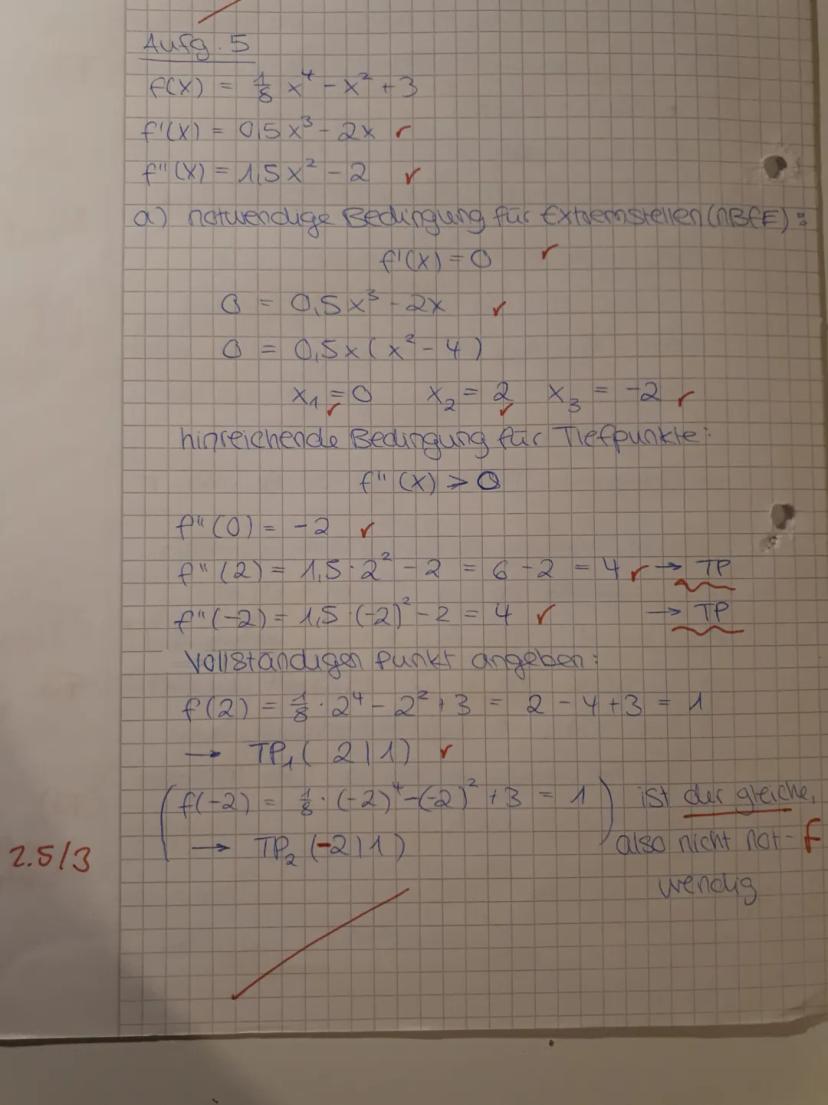 Aufg. 5
f(x) = 1/8 x⁴ - x² + 3
f'(x) = 0,5x³ - 2x
f''(x) = 1,5x² - 2
a) notwendige Bedingung für Extremstellen (nBfE):
f'(x) = 0
0 = 0,5x³ - 2x
0 = 0,5x (x² - 4)
x₁ = 0 x₂ = 2 x₃ = -2
hinreichende Bedingung für Tiefpunkte:
f''(x) > 0
f''(0) = -2
f''(2) = 1,5 · 2² - 2 = 6 - 2 = 4 → TP
f''(-2) = 1,5 · (-2)² - 2 = 4 → TP
Vollständigen Punkt angeben:
f(2) = 1/8 · 2⁴ - 2² + 3 = 2 - 4 + 3 = 1
→ TP₁ (2|1)
(f(-2) = 1/8 · (-2)⁴ - (-2)² + 3 = 1) ist der gleiche,
→ TP₂ (-2|1) also nicht not- f
wendig
2.5/3